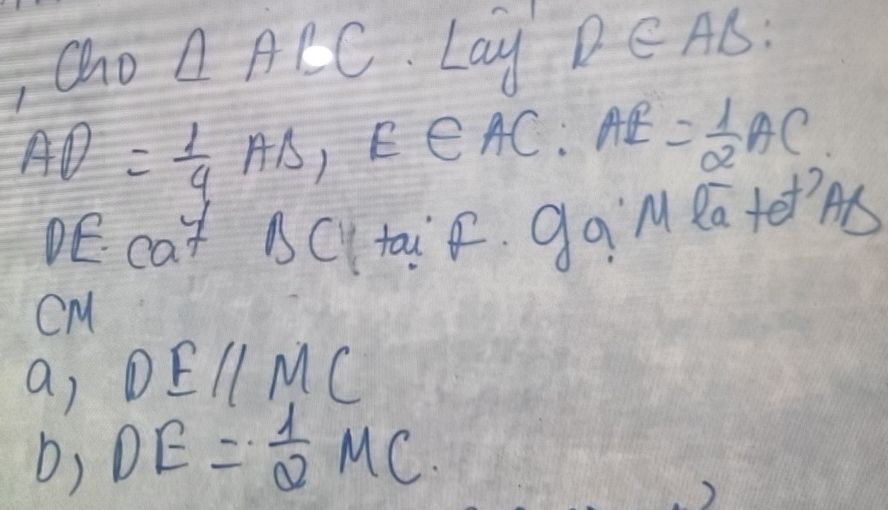 , Cho Δ ABC. Lấy D ∈ AB:
AD = 1/4 AB, E ∈ AC: AE = 1/2 AC.
DE cắt BC tại F. gọi M là tđ AB
CM
a, DE // MC
b, DE = 1/2 MC.